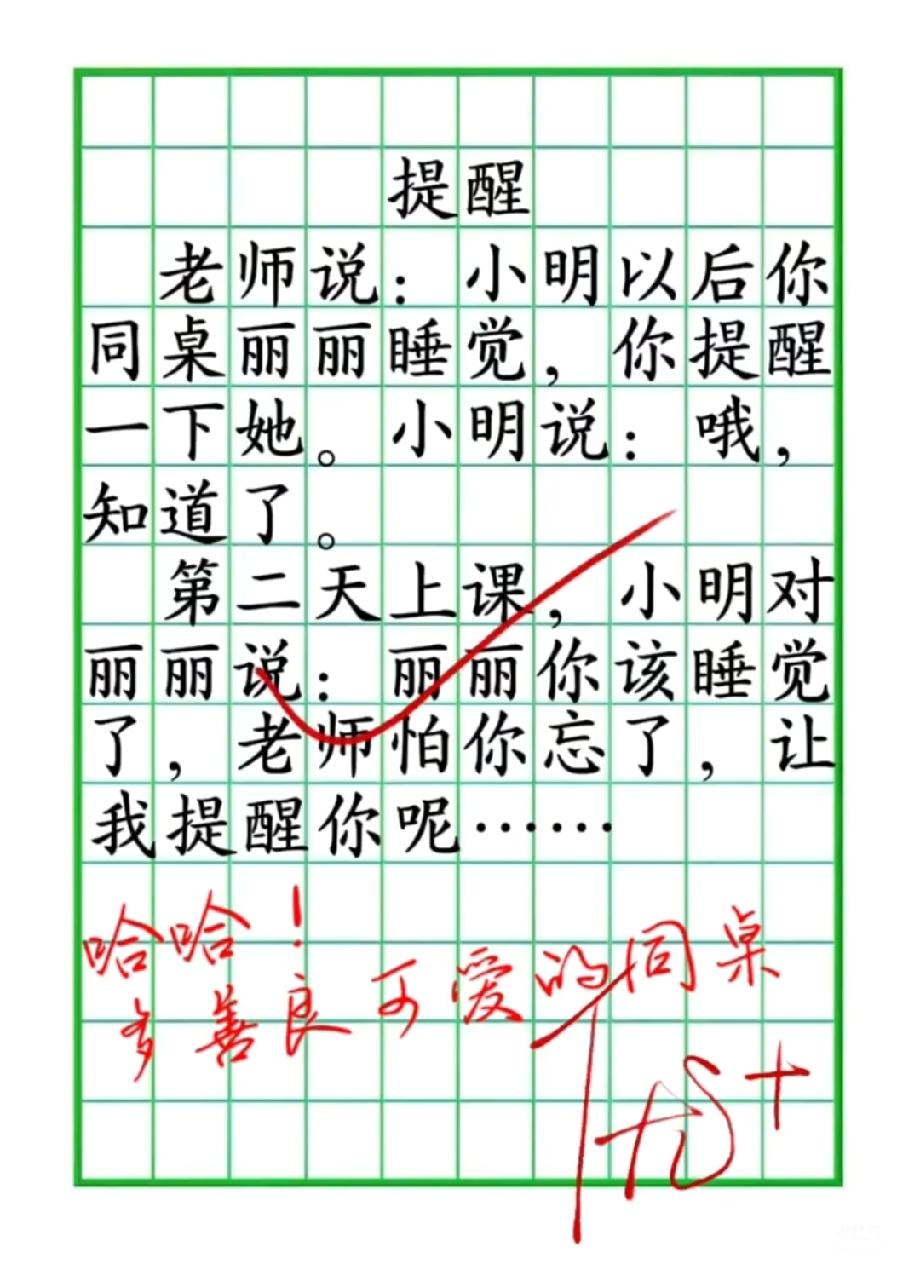 提醒
老师说：小明以后你
同桌丽丽睡觉，你提醒
一下她。小明说：哦，
知道了。
第二天上课，小明对
丽丽说：丽丽你该睡觉
了，老师怕你忘了，让
我提醒你呢……
哈哈！
多善良可爱的同桌
优+